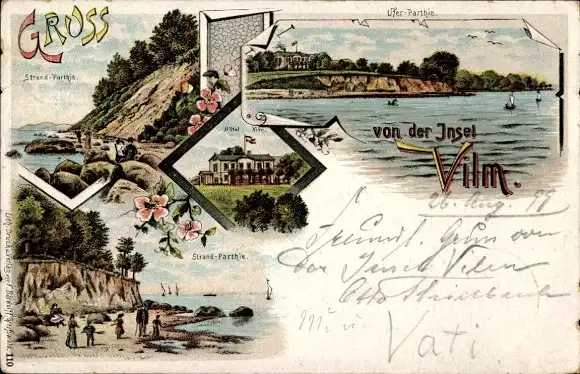 GRUSS
Strand-Parthie.
Ufer-Parthie.
von der Insel
Vilm.
Hôtel Vilm.
Strand-Parthie.
26. Aug. 97
Freundl. Gruss von
der Insel Vilm
Otto
Vati.
110